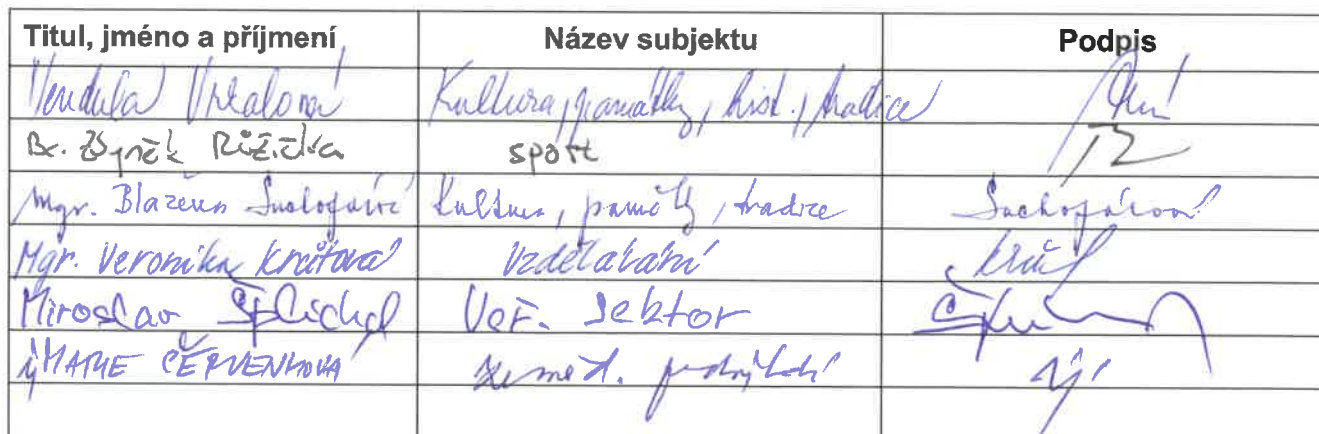 Titul, jméno a příjmení Název subjektu Podpis
Vendula Vrtalová Kultura, památky, hist., tradice
Bc. Zbyněk Růžička sport
Mgr. Blažena Suchofárová Kultura, památky, tradice Suchofárová
Mgr. Veronika Vzdělávání
Miroslav Šplíchal Veř. sektor
MARIE ČERVENKOVÁ zeměd. podnikání